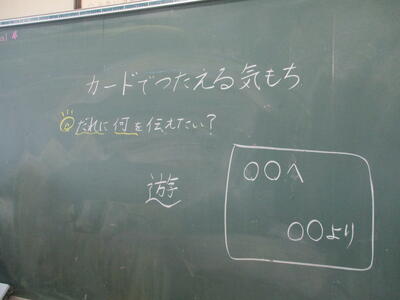 カードでつたえる気もち
だれに何を伝えたい?
遊
〇〇へ
〇〇より